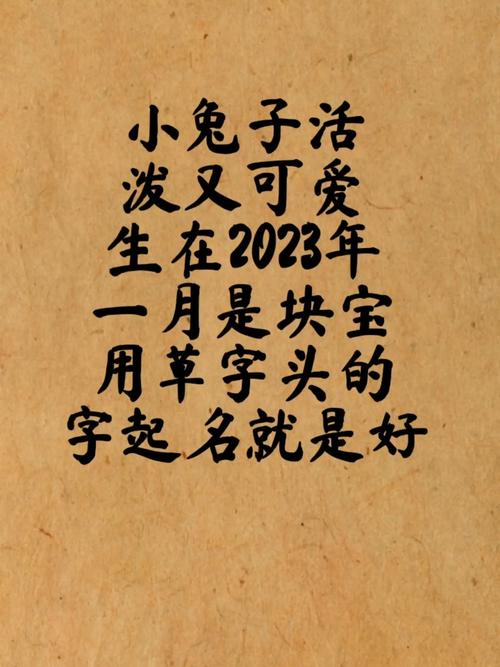 小兔子活
泼又可爱
生在2023年
一月是块宝
用草字头的
字起名就是好